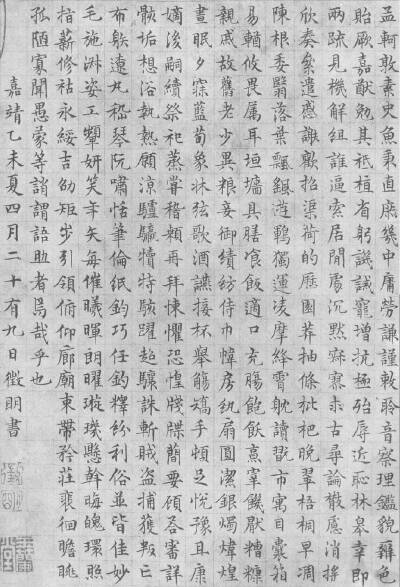 孟軻敦素史魚秉直庶幾中庸勞謙謹敕聆音察理鑑貌辨色
貽厥嘉猷勉其祗植省躬譏誡寵增抗極殆辱近恥林皋幸即
兩疏見機解組誰逼索居閒處沉默寂寥求古尋論散慮消搖
欣奏累遣慼謝歡招渠荷的歷園莽抽條枇杷晚翠梧桐早凋
陳根委翳落葉飄颻遊鵾獨運凌摩絳霄躭讀翫市寓目囊箱
易輶攸畏属耳垣墻具膳飡飯適口充腸飽飫烹宰飢厭糟糠
親戚故舊老少異粮妾御績紡侍巾幃房紈扇圓潔銀燭煒煌
晝眠夕寐藍荀象牀弦歌酒讌接杯舉觴矯手頓足悅豫且康
嫡後嗣續祭祀蒸嘗稽顙再拜悚懼恐惶牋牒簡要顧答審詳
骸垢想浴執熱願涼驢騾犢特駭躍超驤誅斬賊盜捕獲叛亡
布射遼丸嵇琴阮嘯恬筆倫紙鈞巧任釣釋紛利俗並皆佳妙
毛施淑姿工顰妍笑年矢每催曦暉朗曜璇璣懸斡晦魄環照
指薪修祜永綏吉劭矩步引領俯仰廊廟束帶矜莊裴徊瞻眺
孤陋寡聞愚蒙等誚謂語助者焉哉乎也
嘉靖乙未夏四月二十有九日徵明書